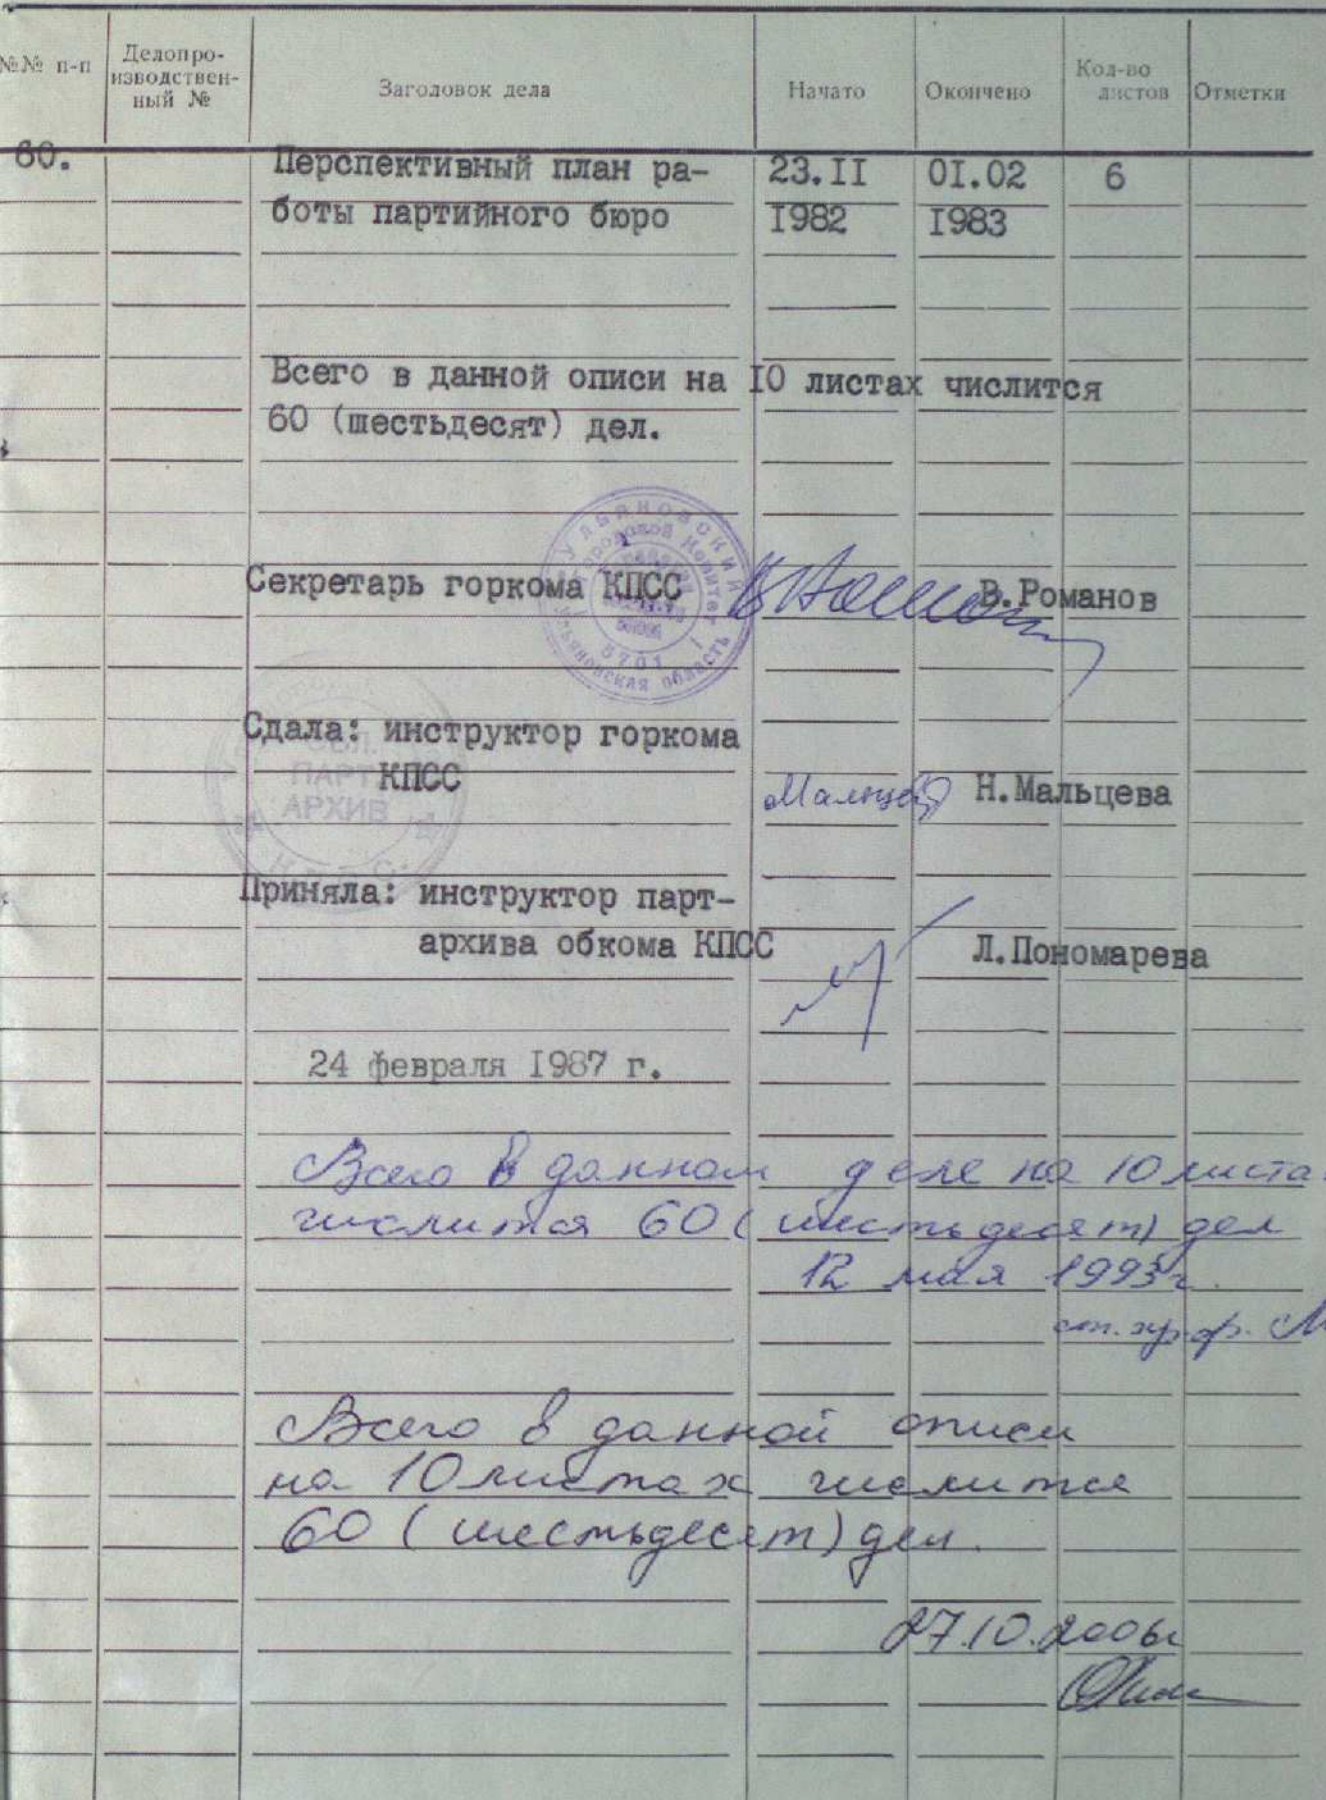 №№ п-п
Делопро-
изводствен-
ный №
Заголовок дела
Начато
Окончено
Кол-во
листов
Отметки
60.
Перспективный план ра-
боты партийного бюро
23.II
1982
01.02
1983
6
Всего в данной описи на 10 листах числится
60 (шестьдесят) дел.
Ульяновский
Городской Комитет
5701
Ульяновская область
Секретарь горкома КПСС В.Романов
Сдала: инструктор горкома
КПСС
Мальцева Н.Мальцева
ПАРТ
АРХИВ
Приняла: инструктор парт-
архива обкома КПСС Л.Пономарева
24 февраля 1987 г.
Всего в данном деле на 10 листа
числится 60 (шестьдесят) дел
12 мая 1993г.
Всего в данной описи
на 10 листах числится
60 (шестьдесят) дел.
27.10.2006г